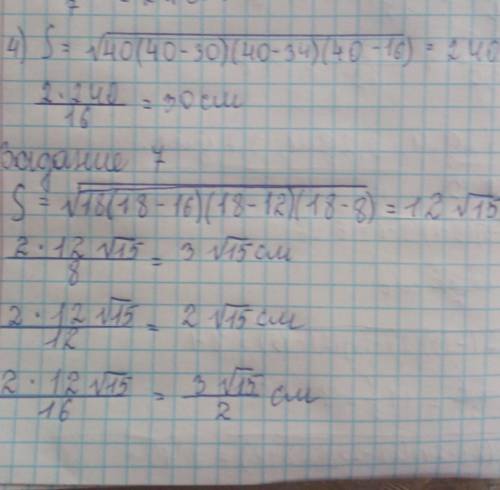 4) S = √40(40-30)(40-34)(40-16) = 240
2·240/16 = 30 см
Задание 7
S = √18(18-16)(18-12)(18-8) = 12√15
2·12√15/8 = 3√15 см
2·12√15/12 = 2√15 см
2·12√15/16 = 3√15/2 см